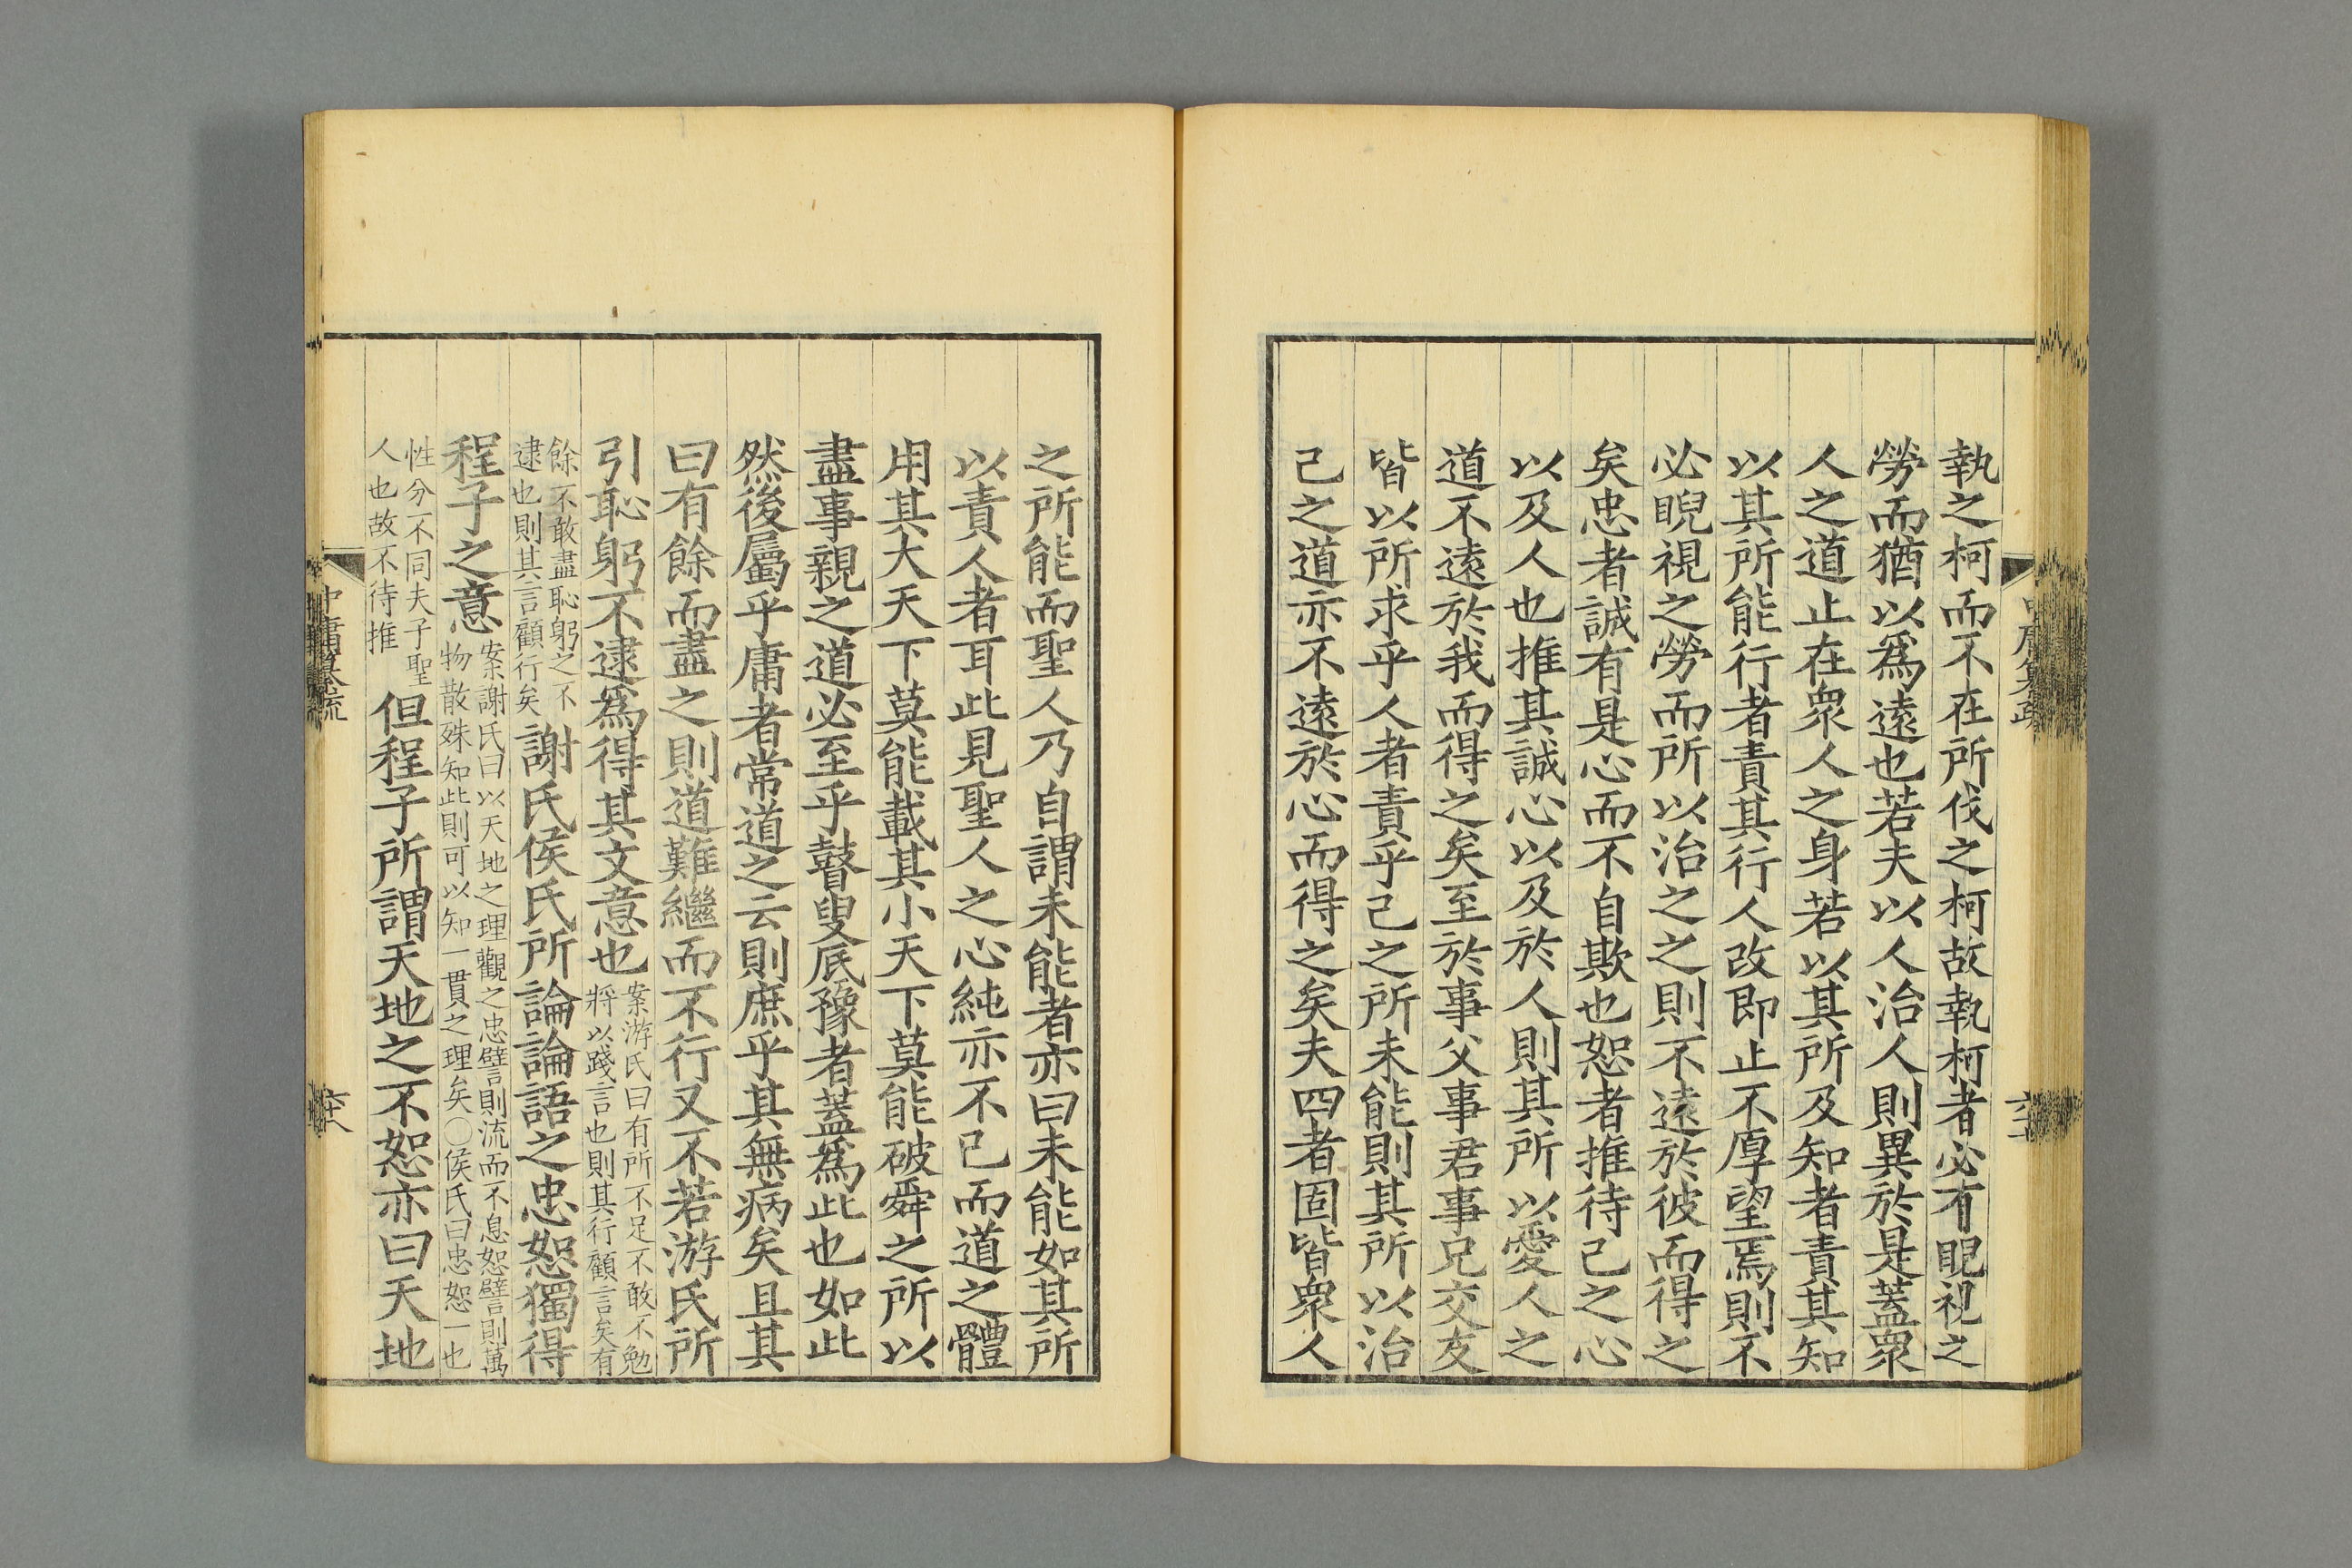 執之柯而不在所伐之柯故執柯者必有睨視之
勞而猶以爲遠也若夫以人治人則異於是蓋衆
人之道止在衆人之身若以其所及知者責其知
以其所能行者責其行人改即止不厚望焉則不
必睨視之勞而所以治之之則不遠於彼而得之
矣忠者誠有是心而不自欺也恕者推待己之心
以及人也推其誠心以及於人則其所以愛人之
道不遠於我而得之矣至於事父事君事兄交友
皆以所求乎人者責乎己之所未能則其所以治
己之道亦不遠於心而得之矣夫四者固皆衆人
之所能而聖人乃自謂未能者亦曰未能如其所
以責人者耳此見聖人之心純亦不已而道之體
用其大天下莫能載其小天下莫能破舜之所以
盡事親之道必至乎瞽叟厎豫者蓋爲此也如此
然後屬乎庸者常道之云則庶乎其無病矣且其
曰有餘而盡之則道難繼而不行又不若游氏所
引恥躬不逮爲得其文意也
案游氏曰有所不足不敢不勉
將以踐言也則其行顧言矣有
餘不敢盡恥躬之不
逮也則其言顧行矣
謝氏侯氏所論論語之忠恕獨得
程子之意
案謝氏曰以天地之理觀之忠譬則流而不息恕譬則萬
物散殊知此則可以知一貫之理矣○侯氏曰忠恕一也
性分不同夫子聖
人也故不待推
但程子所謂天地之不恕亦曰天地
中庸纂疏
六十八